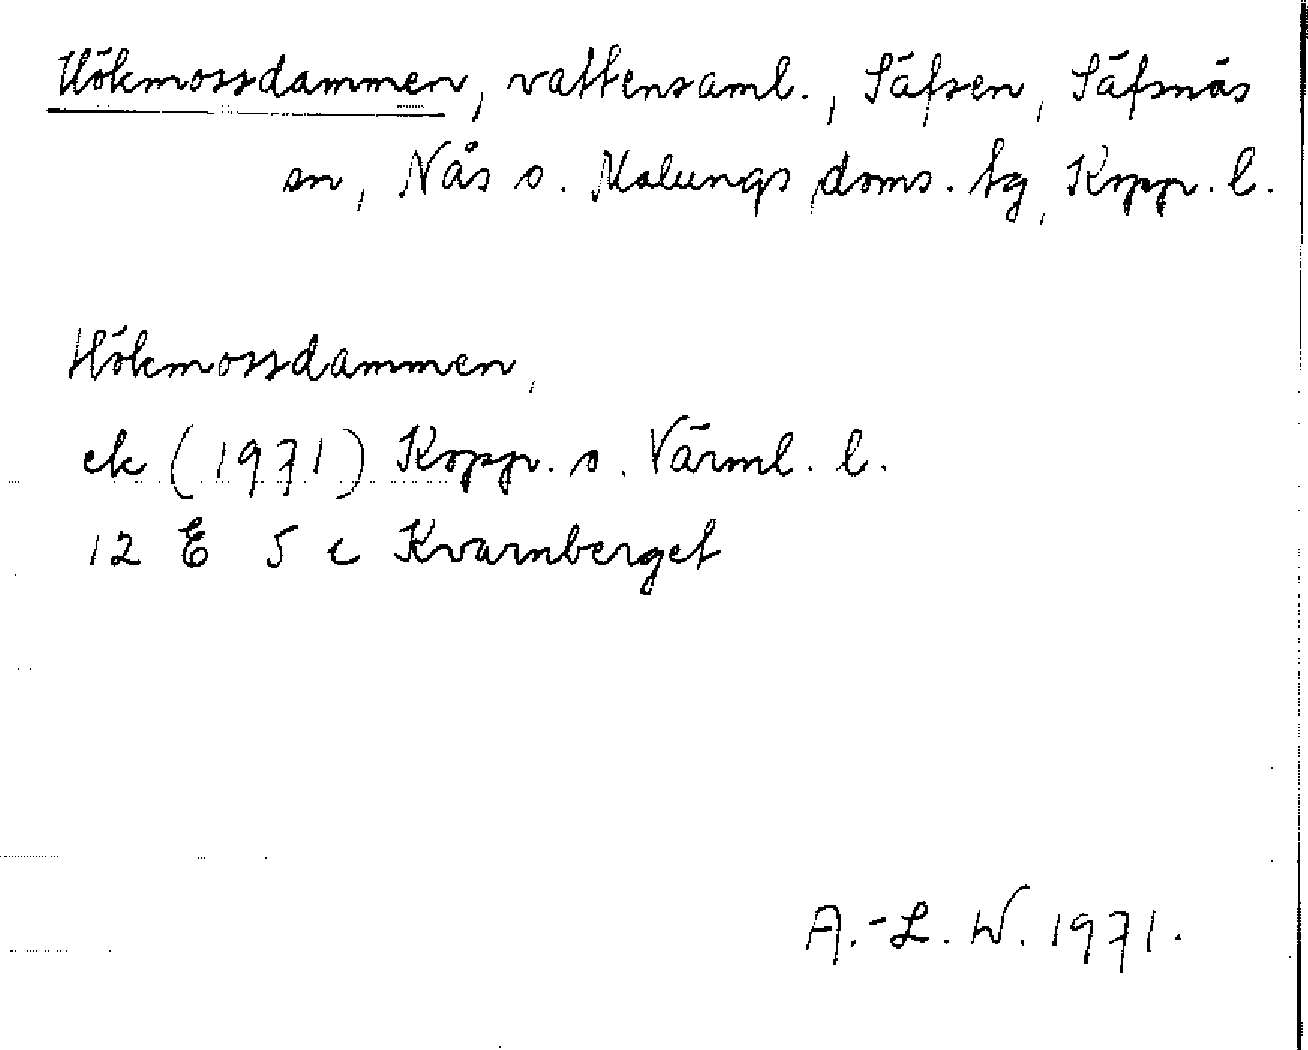 Hökmossdammen, vattensaml., Säfsen, Säfsnäs
sn, Nås o. Malungs doms. tg, Kopp. l.
Hökmossdammen,
ek (1971) Kopp. o. Värml. l.
12 E 5 c Kvarnberget
A.-L. W. 1971.